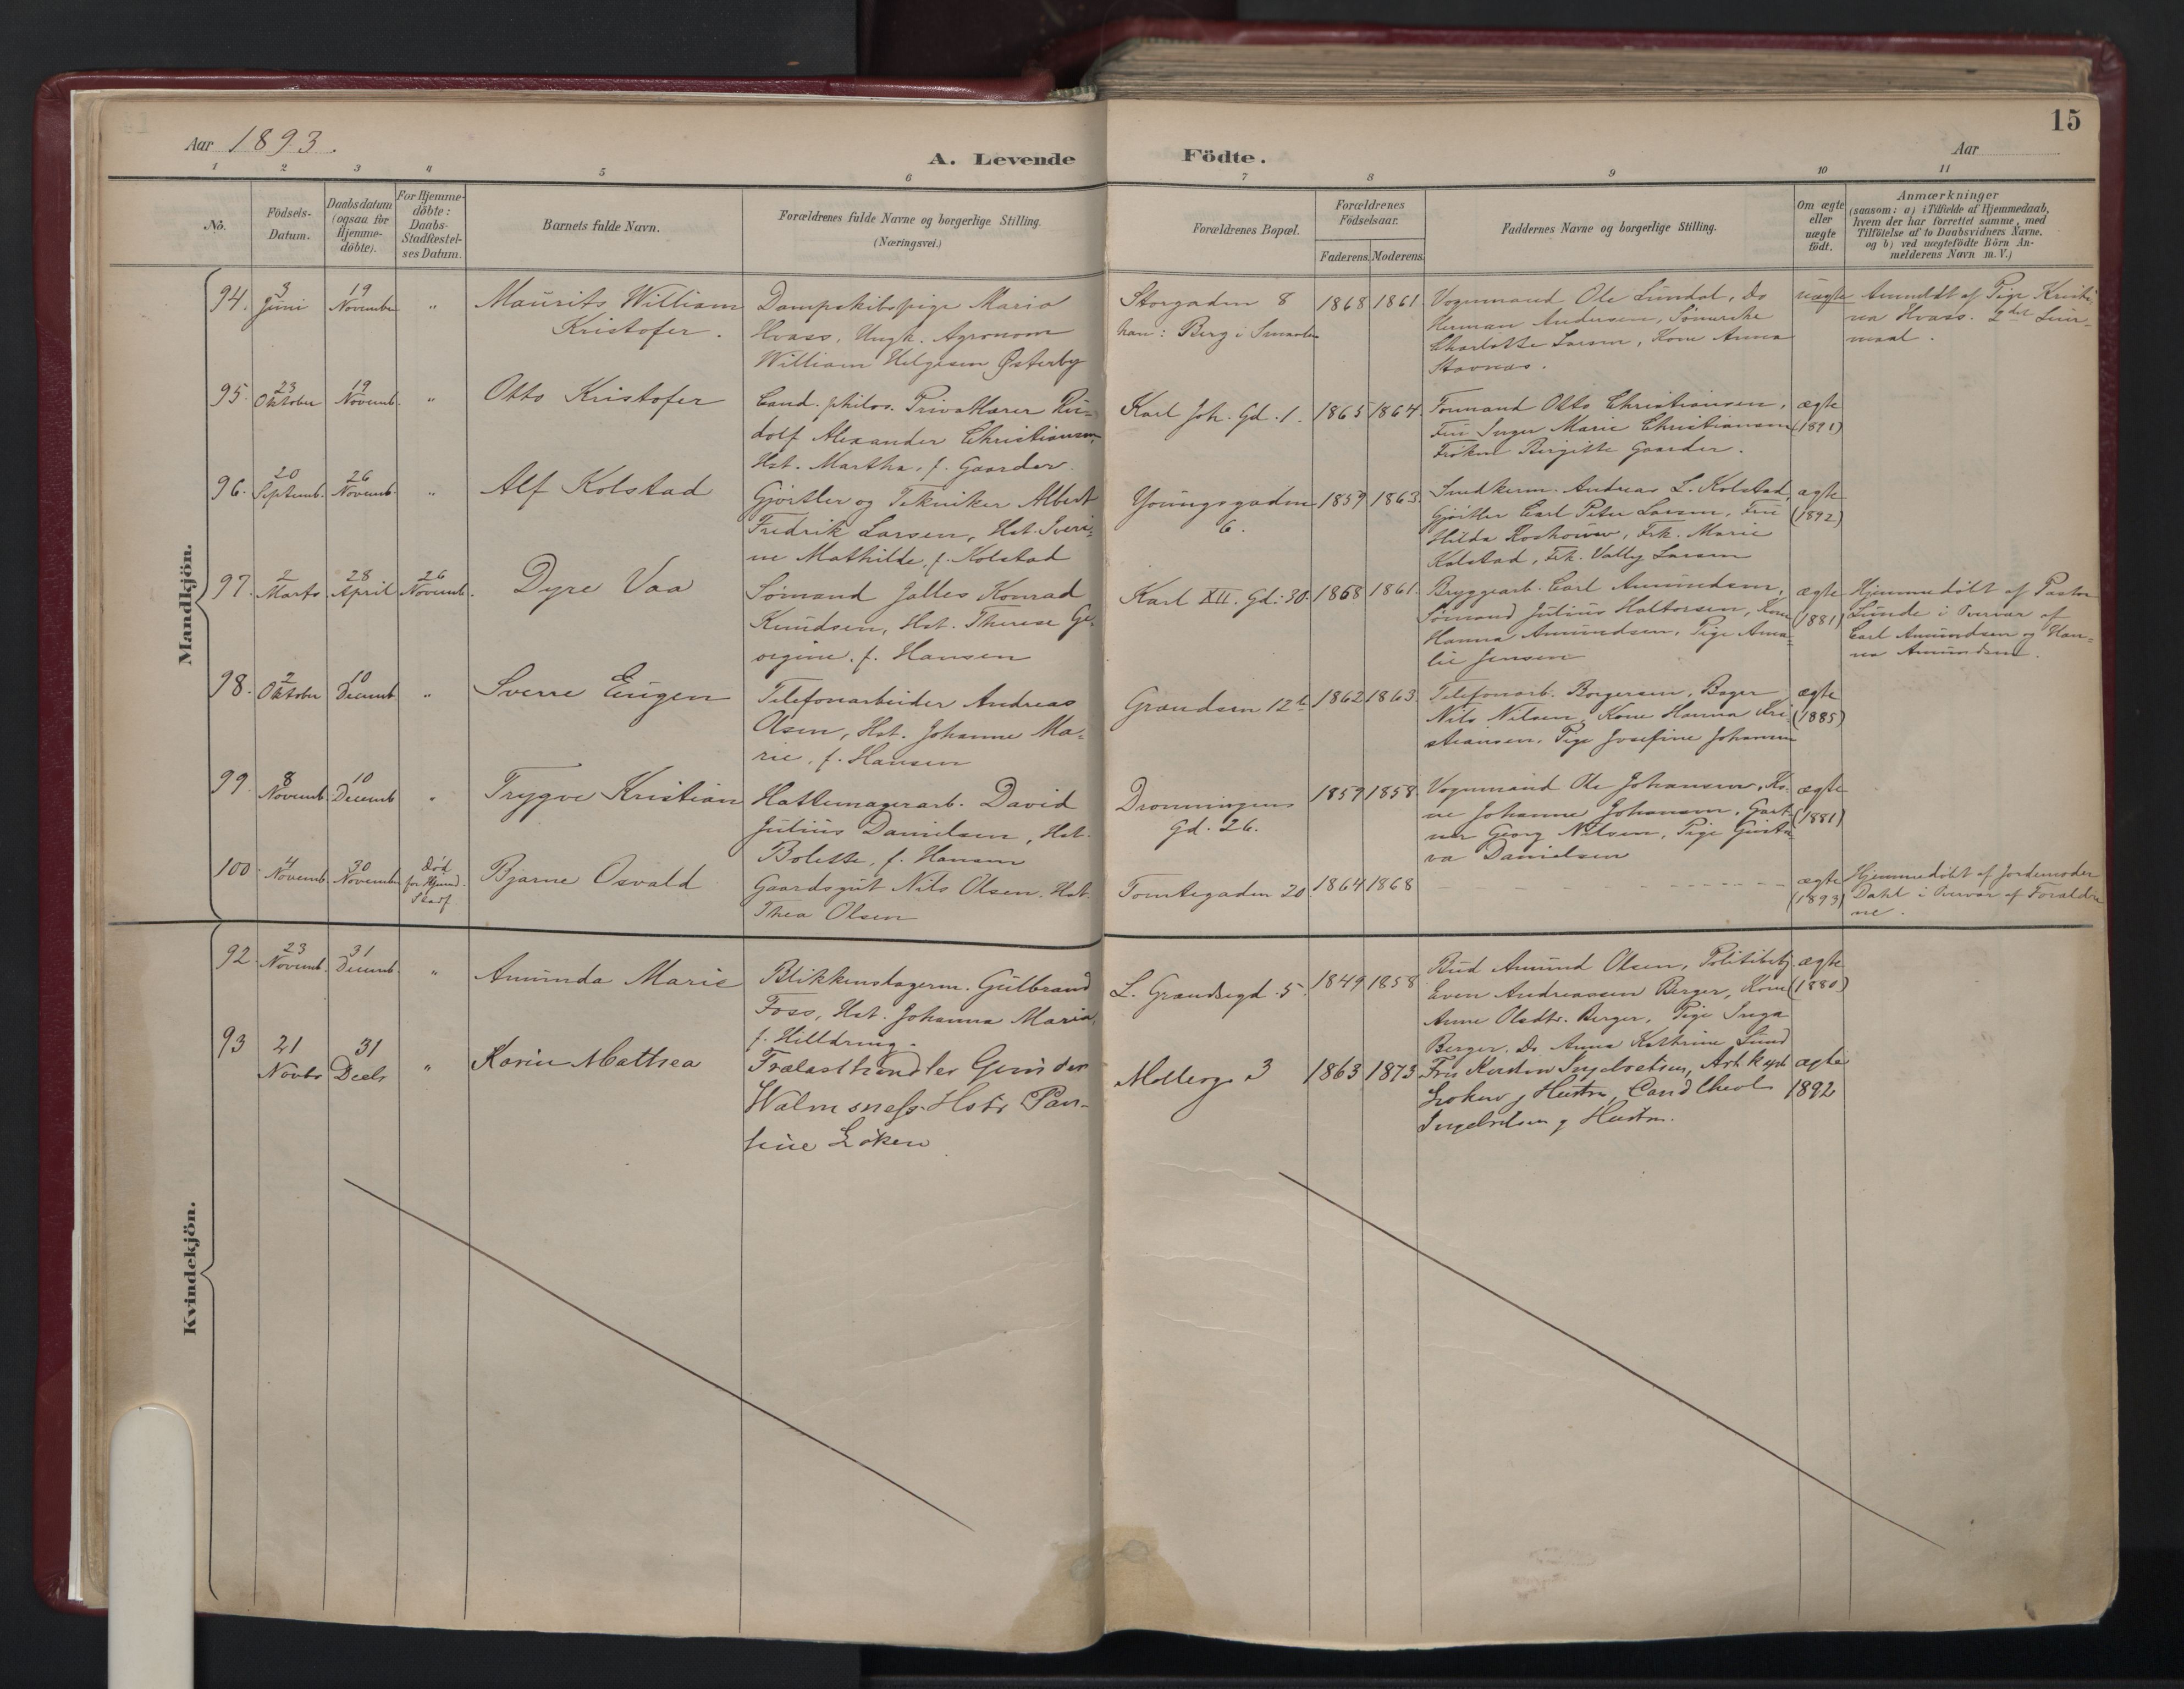 15
Aar 1893.
A. Levende Födte.
Aar
1 2 3 4 5 6 7 8 9 10 11
No.
Födsels-
Datum.
Daabsdatum
(ogsaa for
Hjemme-
döbte).
For Hjemme-
döbte:
Daabs-
Stadfæstel-
ses Datum.
Barnets fulde Navn.
Forældrenes fulde Navne og borgerlige Stilling.
(Næringsvei.)
Forældrenes Bopæl.
Forældrenes
Födselsaar.
Faderens. Moderens.
Faddernes Navne og borgerlige Stilling.
Om ægte
eller
uægte
födt.
Anmærkninger
(saasom: a) i Tilfælde af Hjemmedaab,
hvem der har forrettet samme, med
Tilföielse af to Daabsvidners Navne.
og b) ved uægtefödte Börn An-
melderens Navn m. V.)
Mandkjön.
94.
3
Juni
19
November
"
Maurits William
Kristofer.
Dampskibspige Maria
Hvass, Ungk. Agronom
William Helgesen Østerby
Storgaden 8
han: Berg i
1868 1861.
Vognmand Ole Lundal, Do
Herman Andersen,
Charlotte Larsen, Kone Anna
Stavnas.
uægte
Anmeldt af Pige Kristi-
na Hvass. 2det Leier-
maal.
95.
23
Oktober
19
Novemb.
"
Otto Kristofer
Cand. philos. Privatlærer Ru-
dolf Alexander Christiansen,
Hst. Martha, f. Gaarder.
Karl Joh. Gd. 1.
1865 1864.
Formand Otto Christiansen,
Fru Inger Marie Christiansen
Frøken Birgitte Gaarder.
ægte
(1891)
96.
20
Septemb.
26
Novemb.
"
Alf Kolstad
Gjørtler og Tekniker Albert
Fredrik Larsen, Hst. Severi-
ne Mathilde, f. Kolstad
Youngsgaden
6.
1859 1863.
Snedkerm. Andreas L. Kolstad,
Gjørtler Carl Peter Larsen, Fru
Hilda, Frk. Marie
Kolstad, Frk. Vally Larsen
ægte
(1892)
97.
2
Marts
28
April
26
Novemb.
Dyre Vaa
Sømand Jalles Konrad
Knudsen, Hst. Therese Ge-
orgine, f. Hansen
Karl XII. Gd: 30.
1868 1861.
Bryggearb. Carl Amundsen,
Sømand Julius Haltorsen, Kone
Hanna Amundsen, Pige Ama-
lie Jensen
ægte
(1881)
Hjemmedøbt af Pastor
Lunde i Overvær af
Carl Amundsen og Han-
na Amundsen.
98.
2
Oktober
10
Decemb.
"
Sverre Eugen
Telefonarbeider Andreas
Olsen, Hst. Johanne Ma-
rie, f. Hansen
Grændsen 12 b
1862 1863.
Telefonarb. Borgersen, Bager
Nils Nilsen, Kone Hanna Kri-
stiansen, Pige Josefine Johansen
ægte
(1885)
99.
8
Novemb.
10
Decemb
"
Trygve Kristian
Hattemagerarb. David
Julius Danielsen, Hst.
Bolette, f. Hansen
Dronningens
Gd. 26.
1859 1858.
Vognmand Ole Johansen, Ko-
ne Johanne Johansen, Gart-
ner Georg Nilsen, Pige Gusta-
va Danielsen
ægte
(1881)
100.
4
Novemb.
30
November
Død
før Hjemd.
Stadf
Bjarne Osvald
Gaardsgut Nils Olsen, Hst.
Thea Olsen
Tomtegaden 20
1864 1868
ægte
(1893)
Hjemmedøbt af Jordemoder
Dahl i Overvær af Forældre
ne.
Kvindekjön.
92.
23
Novemb.
31
Decemb.
"
Amunda Marie
Blikkenslagerm. Gulbrand
Foss, Hst. Johanna Maria,
f. Hilldring.
L. Grændsegd. 5.
1849 1858
Bud Amund Olsen, Politibetj.
Even Andreassen Berger, Kone
Anne Olsdtr. Berger, Pige Inga
Berger, Do Anna Kathrine Lund
ægte
(1880)
93
21
Novbr
31
Decbr
"
Karin Mathea
Trælasthandler Gunder
Walmsness Hstr. Pau-
line Løken
Møllerg 3
1863 1873
Fru
Løken og Hustru, Cand theol
og Hustru.
ægte
1892